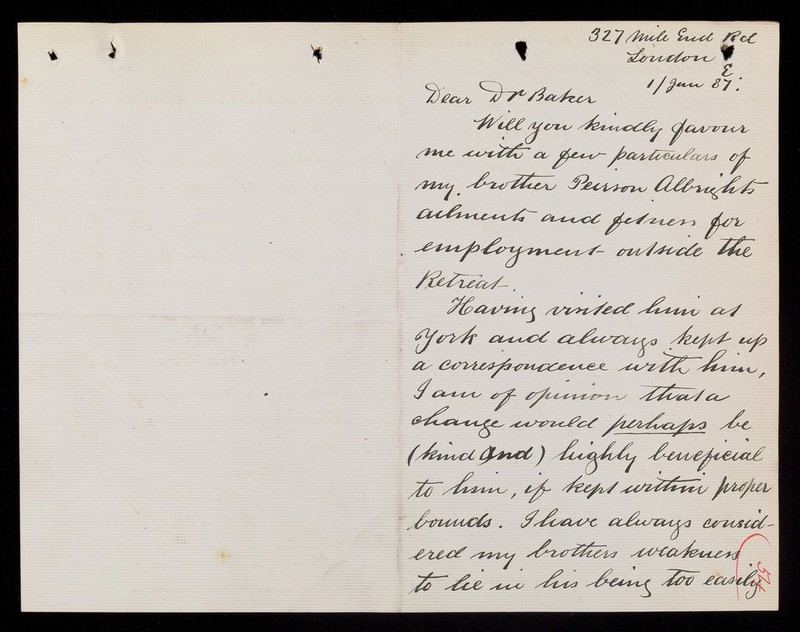 327 Mile End Rd
London
E.
1/Jan 87.
Dear Dr Baker
Will you kindly favour
me with a few particulars of
my brother Peirson Albrights
ailments and fitness for
employment outside the
Retreat.
Having visited him at
York and always kept up
a correspondence with him,
I am of opinion that a
change would perhaps be
(kind and) highly beneficial
to him, if kept within proper
bounds. I have always consid-
ered my brothers weakness
to lie in his being too easily